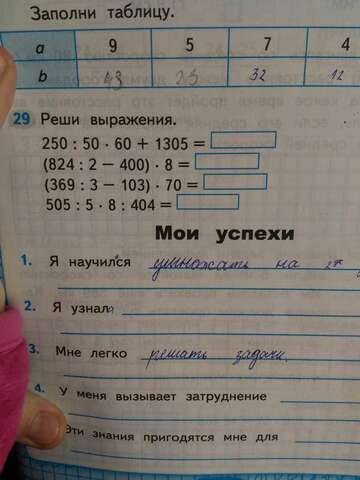 Заполни таблицу.
a 9 5 7 4
b 43 25 32 12
29 Реши выражения.
250 : 50 · 60 + 1305 =
(824 : 2 − 400) · 8 =
(369 : 3 − 103) · 70 =
505 : 5 · 8 : 404 =
Мои успехи
1. Я научился умножать на
2. Я узнал
3. Мне легко решать задачи.
4. У меня вызывает затруднение
Эти знания пригодятся мне для